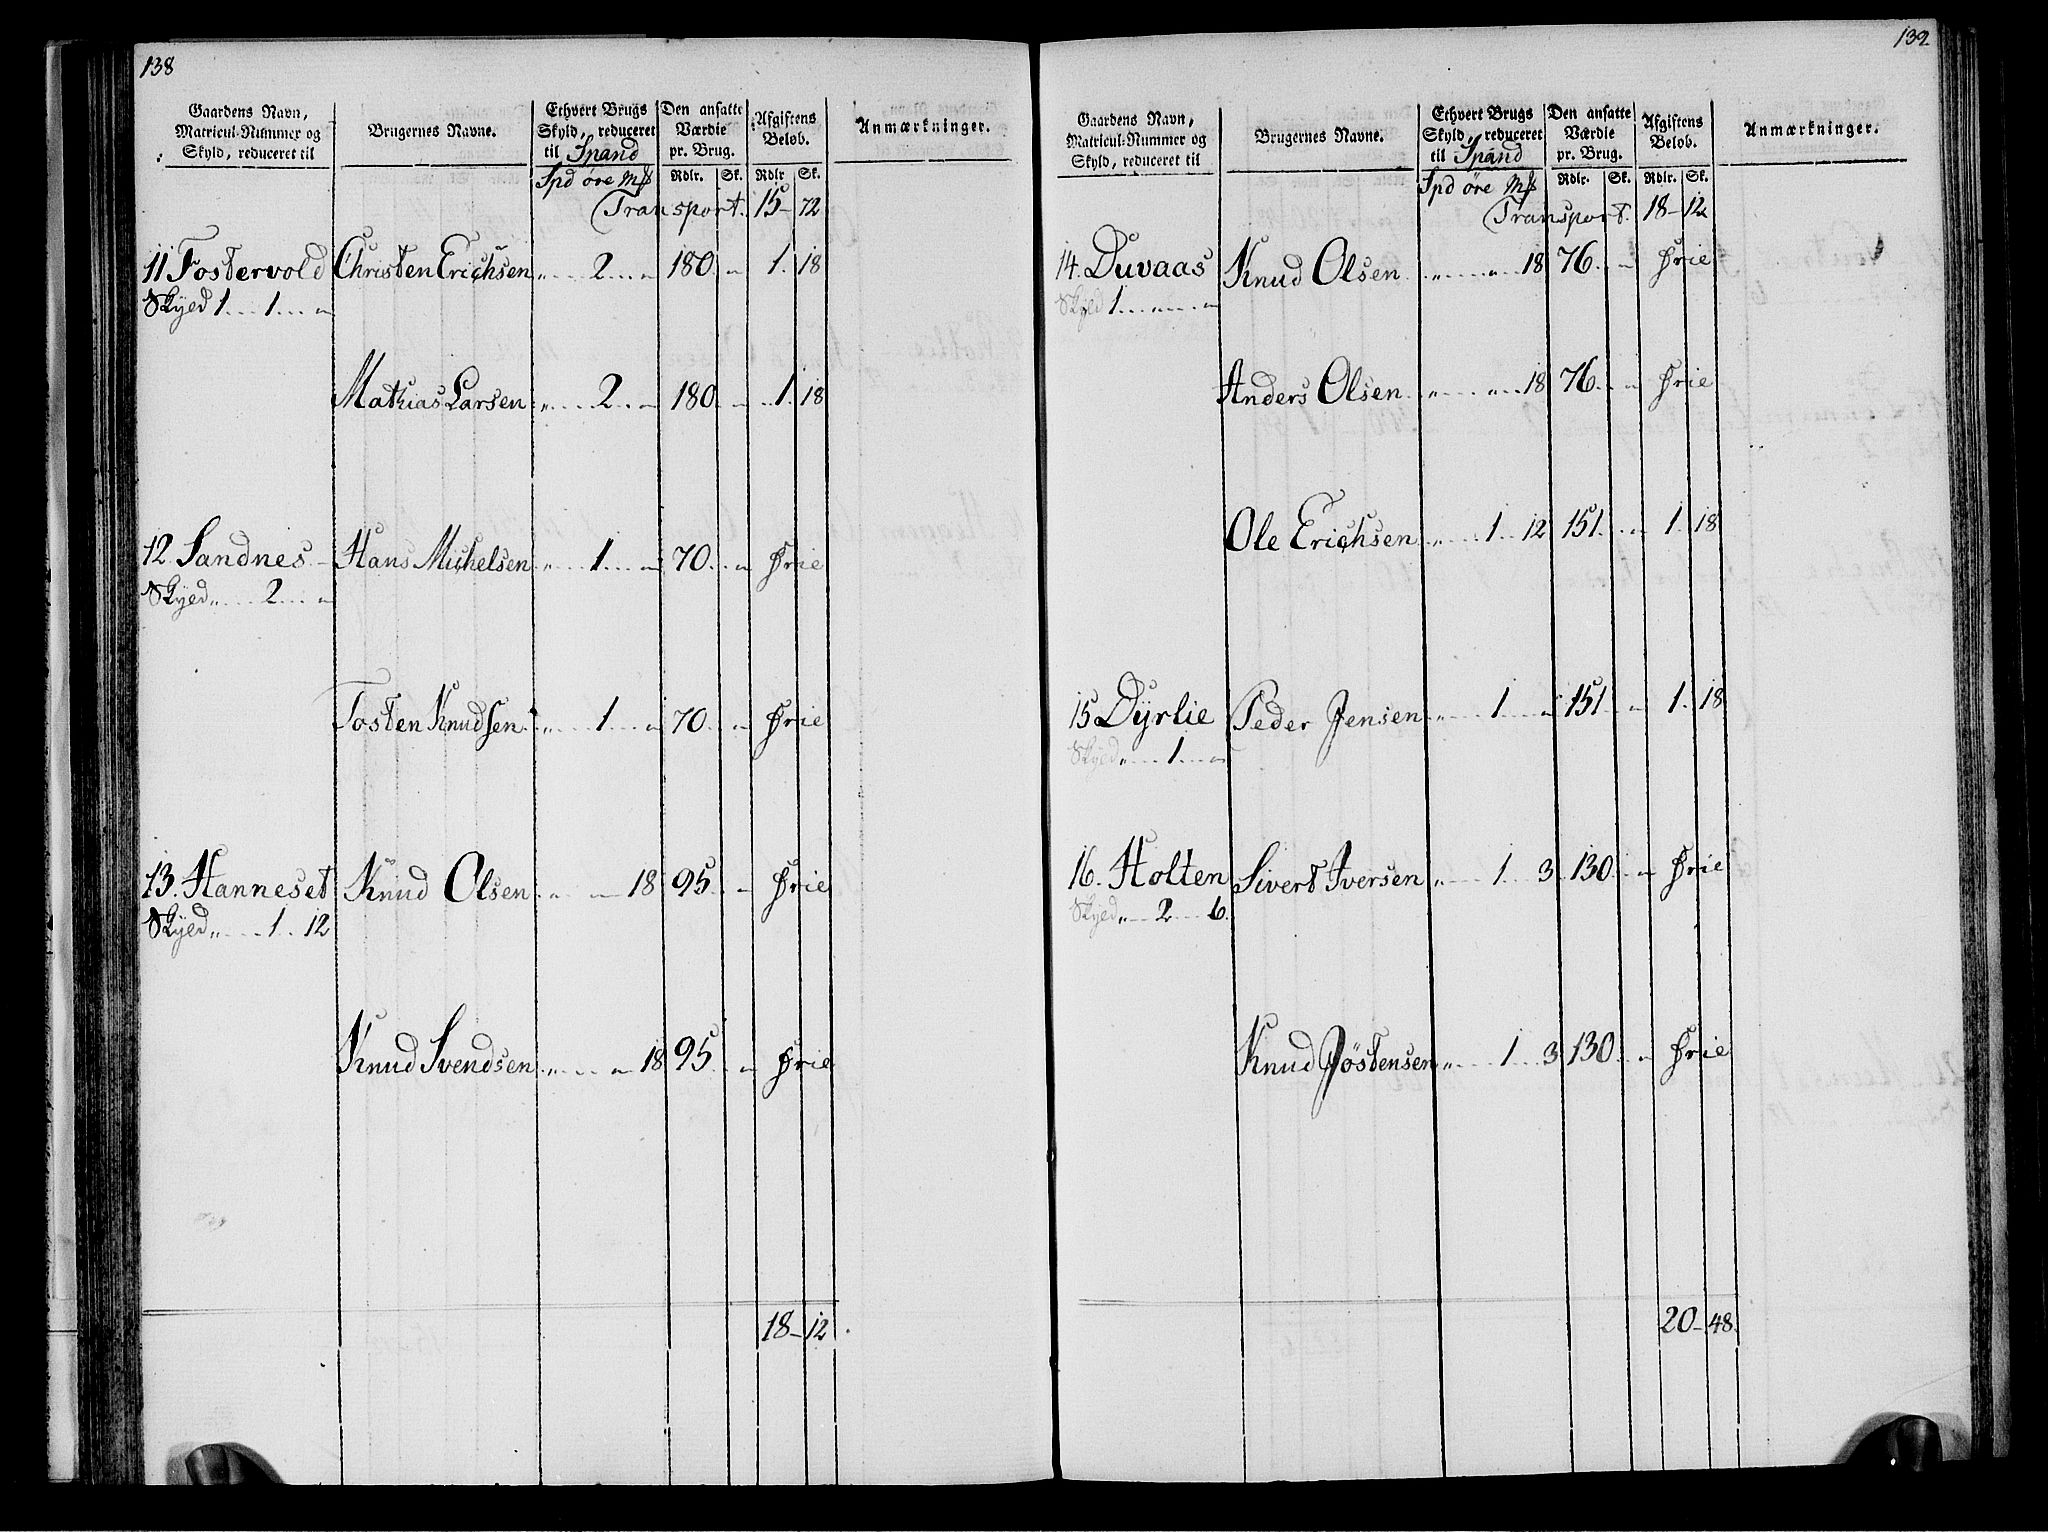 138
Gaardens Navn, Matricul-Nummer og Skyld, reduceret til | Brugernes Navne. | Ethvert Brugs Skyld, reduceret til Spand | Den ansatte Værdie pr. Brug. | Afgiftens Beløb. | Anmærkninger.
Spd øre m℔ | Rdlr. | Sk. | Rdlr | Sk.
Transport. 15 - 72
11 Fostervold Christen Erichsen „ 2 „ 180 „ 1. 18
Skyld 1 . . . 1 . . . „
Mathias Larsen „ 2 „ 180 „ 1. 18
12 Sandnes Hans Michelsen „ 1 „ 70 „ Frie
Skyld „ 2 „
Tosten Knudsen „ 1 „ 70 „ Frie
13. Hanneset Knud Olsen „ „ 18 95 „ Frie
Skyld „ 1 . . 12
Knud Svendsen „ „ 18 95 „ Frie
18 - 12
139
Gaardens Navn, Matricul-Nummer og Skyld, reduceret til | Brugernes Navne. | Ethvert Brugs Skyld, reduceret til Spand | Den ansatte Værdie pr. Brug. | Afgiftens Beløb. | Anmærkninger.
Spd øre m℔ | Rdlr. | Sk. | Rdlr. | Sk.
Transport. 18 - 12
14. Duvaas Knud Olsen „ „ 18 76 „ Frie
Skyld 1 „ „
Anders Olsen „ „ 18 76 „ Frie
Ole Erichsen „ 1 12 151 „ 1. 18
15 Dyrlie Peder Jensen „ 1 „ 151 „ 1. 18
Skyld „ 1 „
16. Holten Sivert Iversen „ 1 3 130 „ Frie
Skyld „ 2 6.
Knud Jöstensen „ 1 3 130 „ Frie
20 - 48.